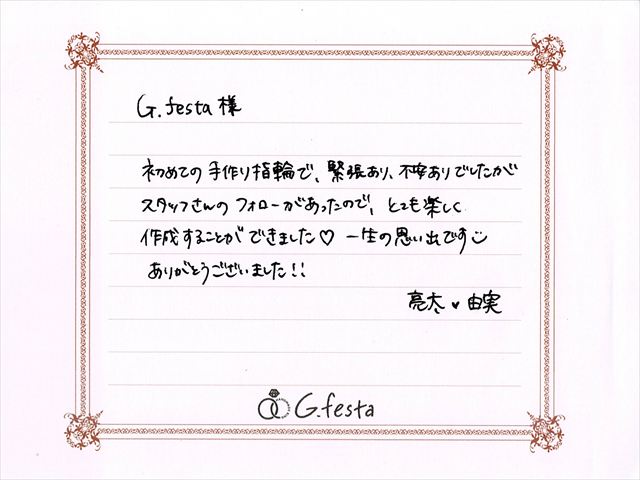 G.festa 様
初めての手作り指輪で、緊張あり、不安ありでしたが
スタッフさんのフォローがあったので、とても楽しく
作成することができました♡ 一生の思い出です
ありがとうございました!!
亮太 ♥ 由実
G.festa